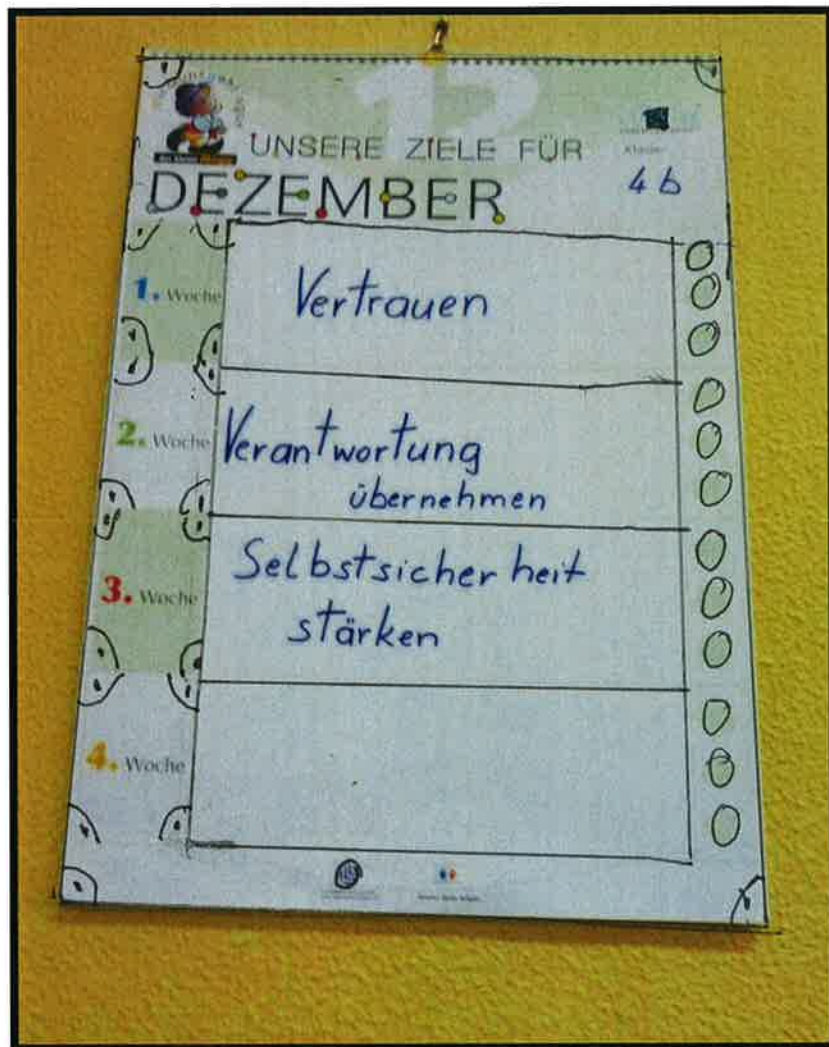 12
UNSERE ZIELE FÜR
Klasse
4b
DEZEMBER
1. Woche
Vertrauen
2. Woche
Verantwortung
übernehmen
3. Woche
Selbstsicherheit
stärken
4. Woche